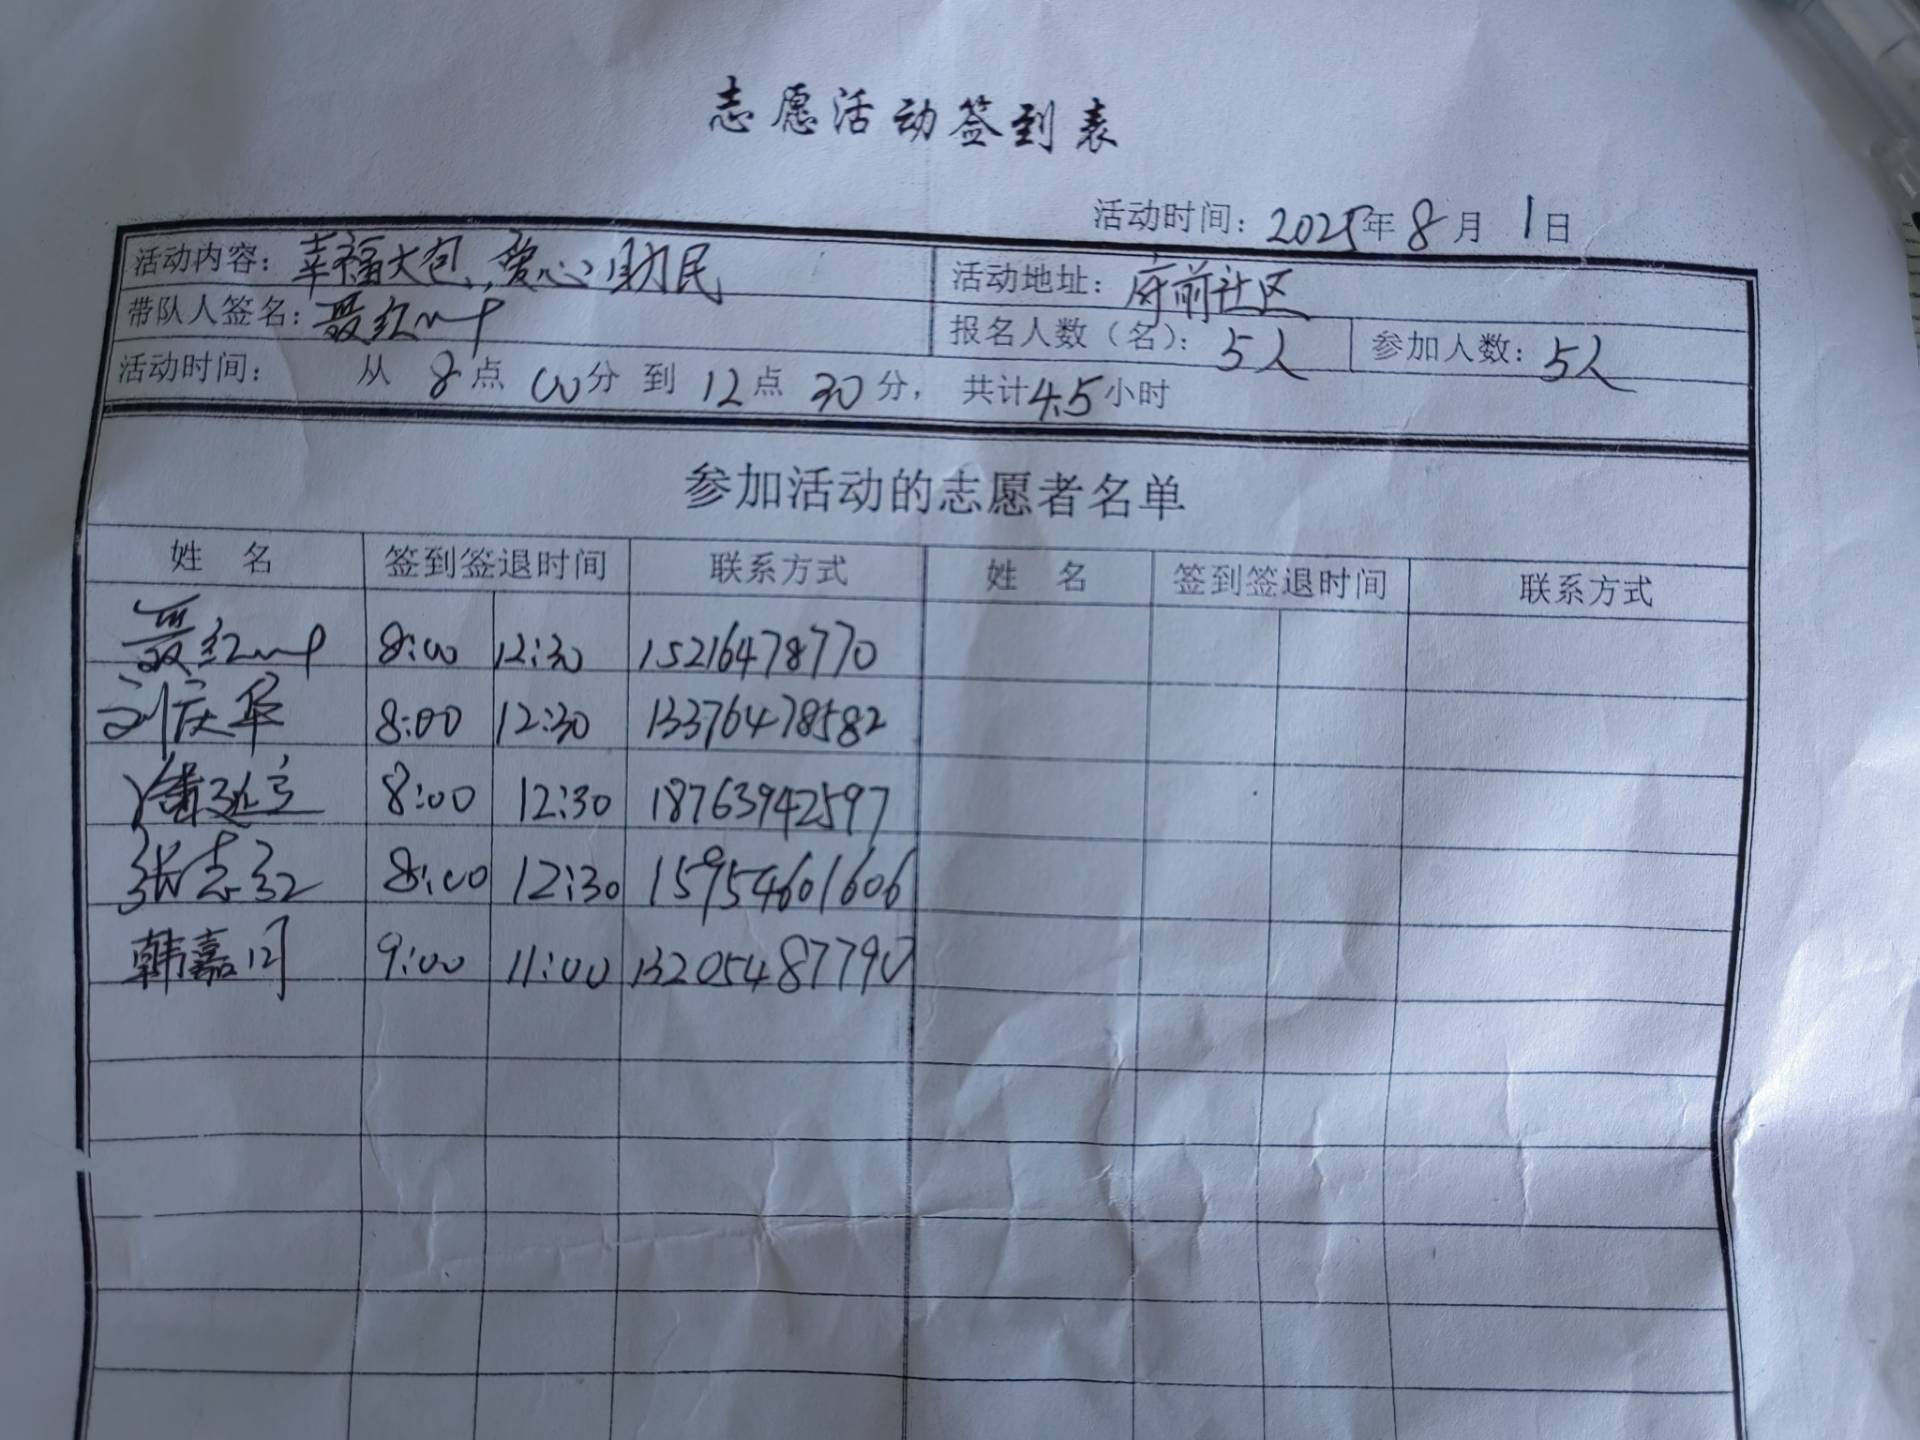 志愿活动签到表
活动时间：2025年8月1日
活动内容：幸福大包，爱心助民 活动地址：府前社区
带队人签名：聂红 报名人数（名）：5人 参加人数：5人
活动时间： 从 8点00分 到 12点30分， 共计4.5小时
参加活动的志愿者名单
姓 名 签到签退时间 联系方式 姓 名 签到签退时间 联系方式
聂红 8:00 12:30 15216478770
刘庆华 8:00 12:30 13376478582
潘延 8:00 12:30 18763942597
张志 8:00 12:30 15954601606
韩嘉 9:00 11:00 13205487790